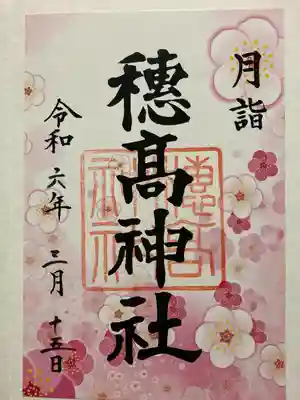 月詣
穂髙神社
穂高神社
令和六年 三月 十五日